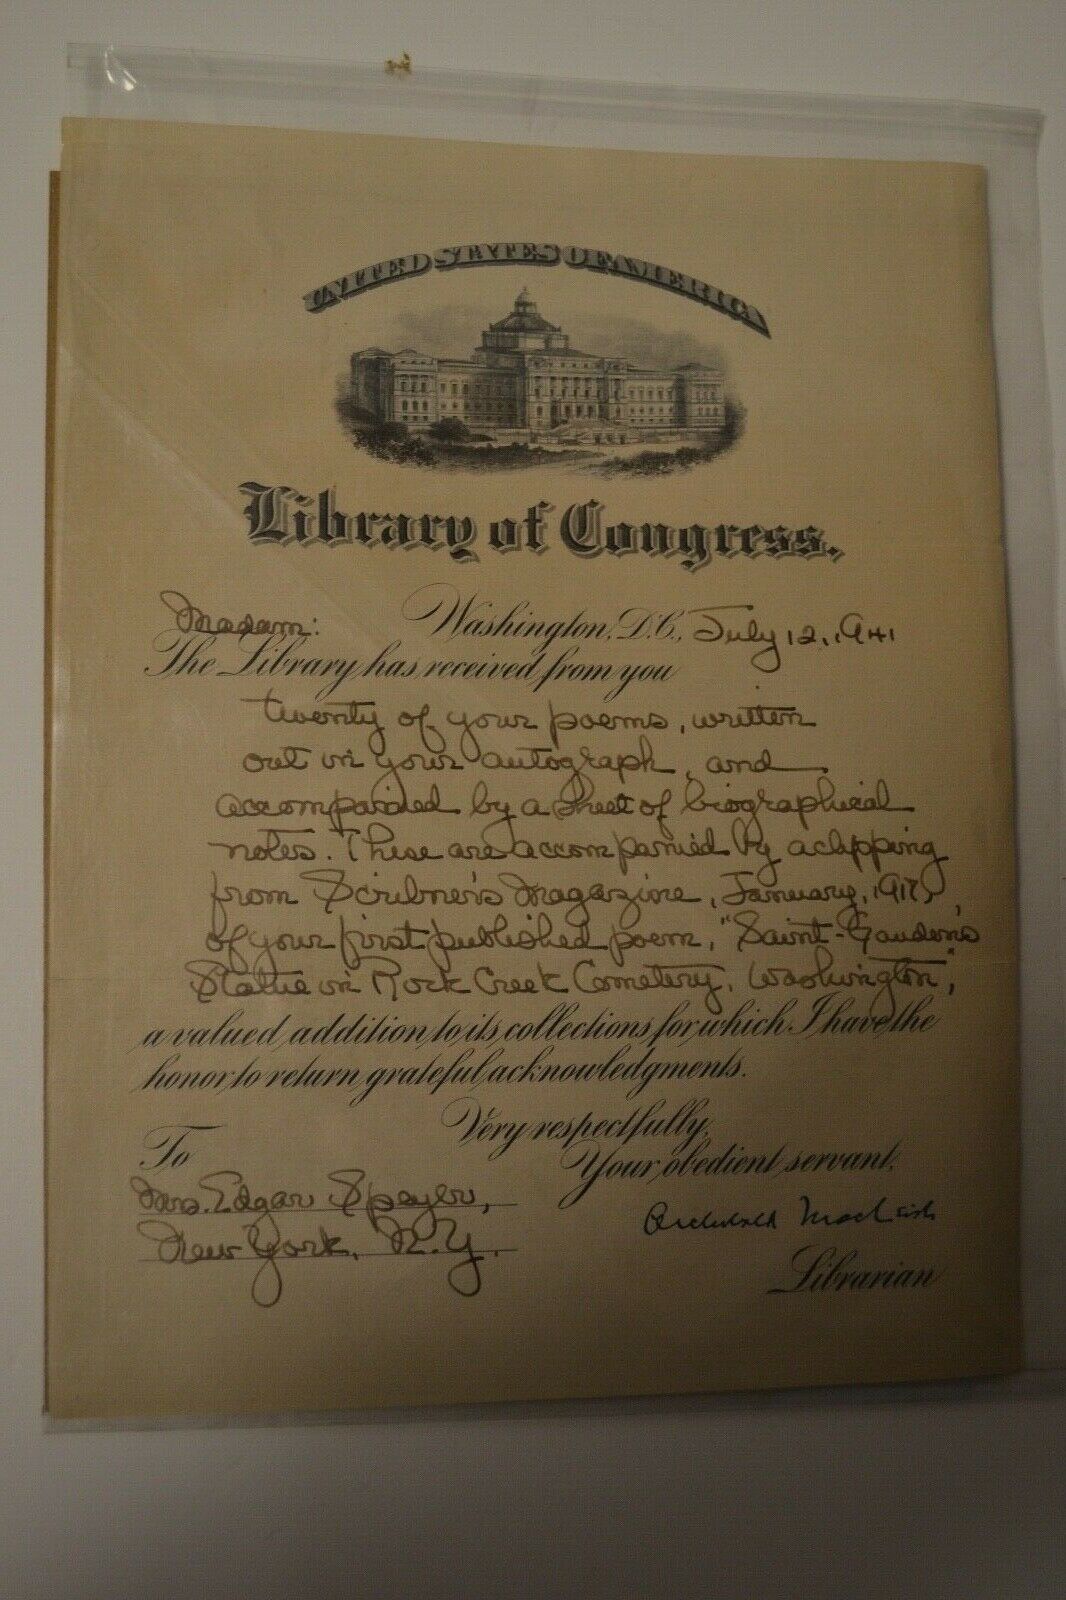 UNITED STATES OF AMERICA
Library of Congress.
Madam: Washington, D.C., July 12, 1941
The Library has received from you
twenty of your poems, written
out in your autograph, and
accompanied by a sheet of biographical
notes. These are accompanied by a clipping
from Scribner's Magazine, January,
of your first published poem, "Saint-Gaudens
Statue in Rock Creek Cemetery, Washington",
a valued addition to its collections for which I have the
honor to return grateful acknowledgments.
Very respectfully,
Your obedient servant,
To
Mrs. Edgar Speyer,
New York, N.Y.
Archibald MacLeish
Librarian